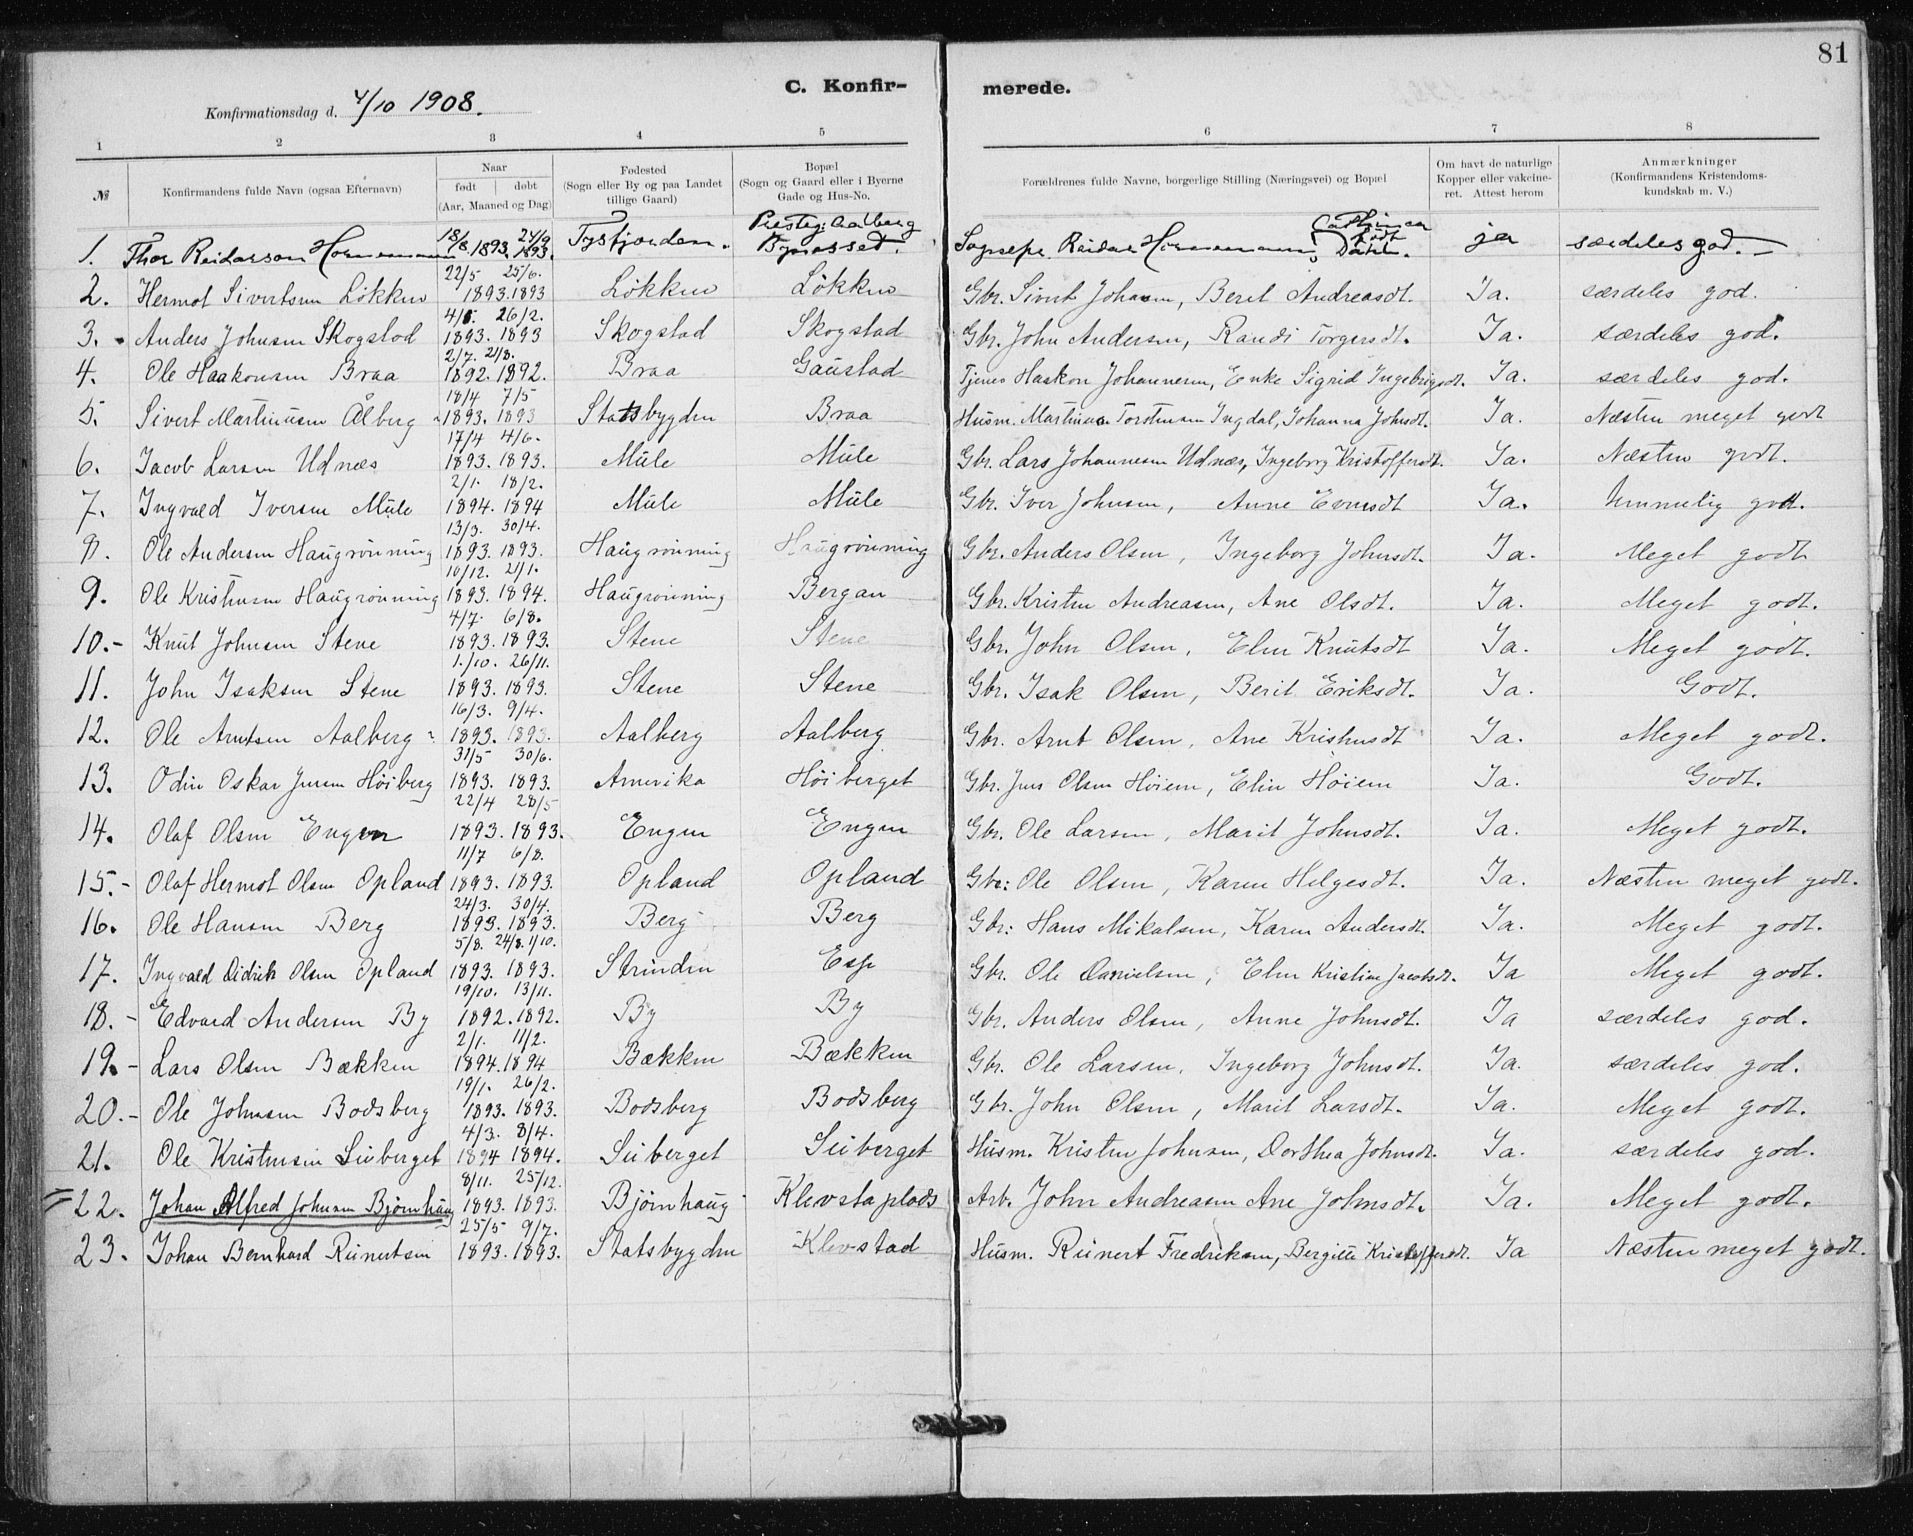 81
C. Konfir- merede.
Konfirmationsdag d. 4/10 1908.
1 2 3 4 5 6 7 8
№ Konfirmandens fulde Navn (ogsaa Efternavn) Naar født døbt (Aar, Maaned og Dag) Fødested (Sogn eller By og paa Landet tillige Gaard) Bopæl (Sogn og Gaard eller i Byerne Gade og Hus-No. Forældrenes fulde Navne, borgerlige Stilling (Næringsvei) og Bopæl Om havt de naturlige Kopper eller vakcineret. Attest herom Anmærkninger (Konfirmandens Kristendomskundskab m. V.)
1. Thor Reidarson Hornemann 18/8 1893. 24/9 1893. Tysfjorden. Presteg: Aalberg Bynesset. Sognepr. Reidar Hornemann, Cathinca født Dahl. ja særdeles god. —
2. Hermot Sivertsen Løkken 22/5 1893. 25/6. 1893 Løkken Løkken Gbr. Sivert Johansen, Berit Andreasdt. Ja. særdeles god.
3. Anders Johnsen Skogstad 1893. 26/2. 1893 Skogstad Skogstad Gbr. John Andersen, Randi Torgersdt. Ja. særdeles god.
4. Ole Haakonsen Braa 2/7. 1892. 21/8. 1892. Braa Gaustad Tjener Haakon Johannesen, Enke Sigrid Ingebrigtsdt. Ja. særdeles god.
5. Sivert Martinusen Ålberg 18/4 1893. 7/5 1893 Statsbygden Braa Husm. Martinus Torstensen Ingdal, Johanna Johnsdt. Ja. Næsten meget godt
6. Jacob Larsen Udnæs 17/4 1893. 4/6. 1893. Mule Mule Gbr. Lars Johannesen Udnæs, Ingeborg Kristoffersdt. Ja. Næsten godt.
7. Ingvald Iversen Mule 2/1. 1894. 18/2. 1894 Mule Mule Gbr. Iver Johnsen, Anne Evensdt Ja. Temmelig godt.
8. Ole Andersen Haugrønning 13/3. 1893. 30/4. 1893. Haugrønning Haugrønning Gbr. Anders Olsen, Ingeborg Johnsdt. Ja. Meget godt
9. Ole Kristensen Haugrønning 10/12. 1893. 21/1. 1894. Haugrønning Bergan Gbr. Kristen Andreasen, Ane Olsdt. Ja. Meget godt.
10. - Knut Johnsen Stene 4/7. 1893. 6/8. 1893. Stene Stene Gbr. John Olsen, Elen Knutsdt Ja. Meget godt.
11. John Isaksen Stene 1./10. 1893. 26/11. 1893. Stene Stene Gbr. Isak Olsen, Berit Eriksdt. Ja. Godt.
12. Ole Arntsen Aalberg 16/3. 1893. 9/4. 1893. Aalberg Aalberg Gbr. Arnt Olsen, Ane Kristensdt Ja. Meget godt.
13. Odin Oskar Jensen Höiberg 31/5 1893. 30/6. 1893. Amerika Höiberget Gbr. Jens Olsen Höiem, Elin Höiem Ja. Godt.
14. Olaf Olsen Engen 22/4 1893. 28/5 1893. Engen Engen Gbr. Ole Larsen, Marit Johnsdt. Ja. Meget godt.
15. - Olaf Hermot Olsen Opland 11/7 1893. 6/8. 1893. Opland Opland Gbr: Ole Olsen, Karen Helgesdt. Ja. Næsten meget godt.
16. Ole Hansen Berg 24/3. 1893. 30/4. 1893. Berg Berg Gbr: Hans Mikalsen, Karen Andersdt. Ja. Meget godt.
17. Ingvald Didrik Olsen Opland 5/8. 1893. 24/8. 1/10. 1893. Strinden Esp Gbr. Ole Danielsen, Elen Kristine Jacobsdt. Ja Meget godt.
18. - Edvard Andersen By 19/10. 1892. 13/11. 1892. By By Gbr. Anders Olsen, Anne Johnsdt. Ja særdeles god.
19. - Lars Olsen Bækken 2/1. 1894. 11/2. 1894 Bækken Bækken Gbr. Ole Larsen, Ingeborg Johnsdt. Ja. særdeles god.
20. - Ole Johnsen Bodsberg 19/1. 1893. 26/2. 1893. Bodsberg Bodsberg Gbr. John Olsen, Marit Larsdt. Ja. Meget godt.
21. Ole Kristensen Leiberget 4/3. 1894 8/4. 1894. Leiberget Leiberget Husm. Kristen Johnsen, Dorthea Johnsdt. Ja. særdeles god.
22. Johan Alfred Johnsen Bjørnhaug 8/11. 1893. 25/12. 1893. Bjørnhaug Klevstaplads Arb. John Andreasen Ane Johnsdt. Ja. Meget godt.
23. Johan Bernhard Reinertsen 25/5 1893. 9/7. 1893. Statsbygden Klevstad Husm. Reinert Fredriksen, Bergitte Kristoffersdt. Ja Næsten meget godt.